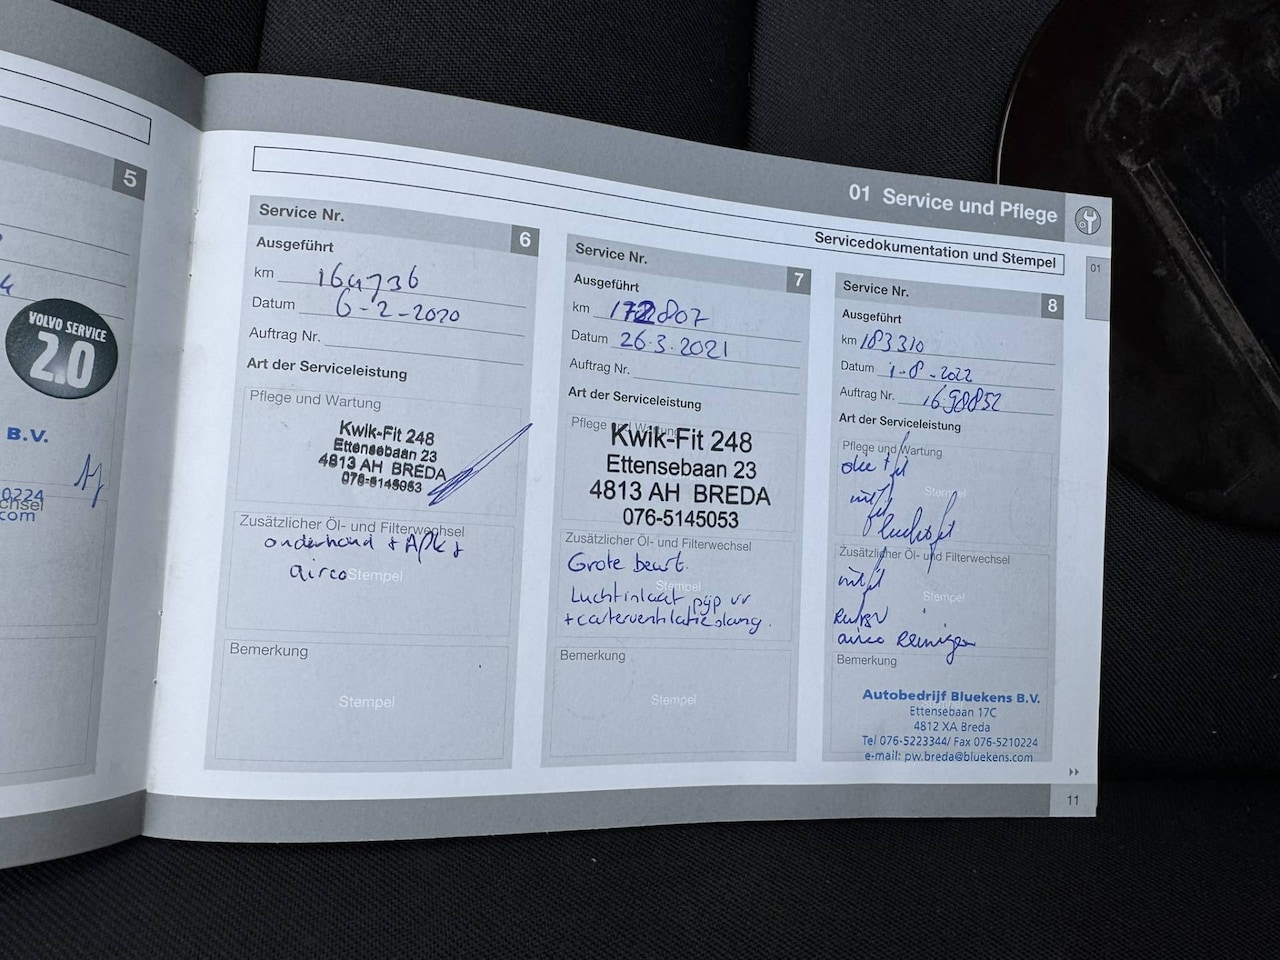 5
VOLVO SERVICE
2.0
B.V.
0224
chsel
com
01 Service und Pflege
Servicedokumentation und Stempel
01
Service Nr.
6
Ausgeführt
km 164736
Datum 6-2-2020
Auftrag Nr.
Art der Serviceleistung
Pflege und Wartung
Kwik-Fit 248
Ettensebaan 23
4813 AH BREDA
076-5145053
Zusätzlicher Öl- und Filterwechsel
onderhoud + Apk +
airco
Stempel
Bemerkung
Stempel
Service Nr.
7
Ausgeführt
km 172807
Datum 26.3.2021
Auftrag Nr.
Art der Serviceleistung
Pflege und Wartung
Kwik-Fit 248
Ettensebaan 23
4813 AH BREDA
076-5145053
Zusätzlicher Öl- und Filterwechsel
Grote beurt.
Stempel
Luchtinlaat pijp vv
+ carterventilatie slang.
Bemerkung
Stempel
Service Nr.
8
Ausgeführt
km 183310
Datum 1-8-2022
Auftrag Nr. 1698852
Art der Serviceleistung
Pflege und Wartung
olie + fil
Stempel
Zusätzlicher Öl- und Filterwechsel
Stempel
airco reinigen
Bemerkung
Autobedrijf Bluekens B.V.
Ettensebaan 17C
4812 XA Breda
Tel 076-5223344/ Fax 076-5210224
e-mail: pw.breda@bluekens.com
11